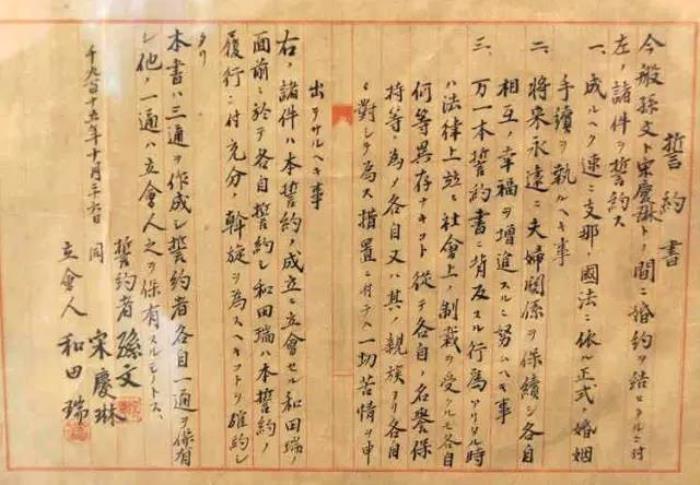 誓約書
今般孫文ト宋慶琳トノ間ニ婚約ヲ結ヒタルニ付
左ノ諸件ヲ誓約ス
一、成ルヘク速ニ支那ノ國法ニ依ル正式ノ婚姻
手續ヲ執ルヘキ事
二、將來永遠ニ夫婦関係ヲ保續シ各自
相互ノ幸福ヲ増進スルニ努ムヘキ事
三、万一本誓約書ニ背反スル行為アリタル時
ハ法律上並ニ社會上ノ制裁ヲ受クルモ各自
何等異存ナキコト從テ各自ノ名譽保
持等ノ為メ各自又ハ其ノ親族ヨリ各自
ニ對シテ為ス措置ニ付テハ一切苦情ヲ申
出テサルヘキ事
右ノ諸件ハ本誓約ノ成立ニ立會セル和田瑞ノ
面前ニ於テ各自誓約シ和田瑞ハ本誓約ノ
履行ニ付充分ノ斡旋ヲ為スヘキコトヲ確約シ
タリ
本書ハ三通ヲ作成シ誓約者各自一通ヲ保有
シ他ノ一通ハ立會人之ヲ保有スルモノトス、
千九百十五年十月廿六日
誓約者 孫文
同 宋慶琳
立會人 和田瑞